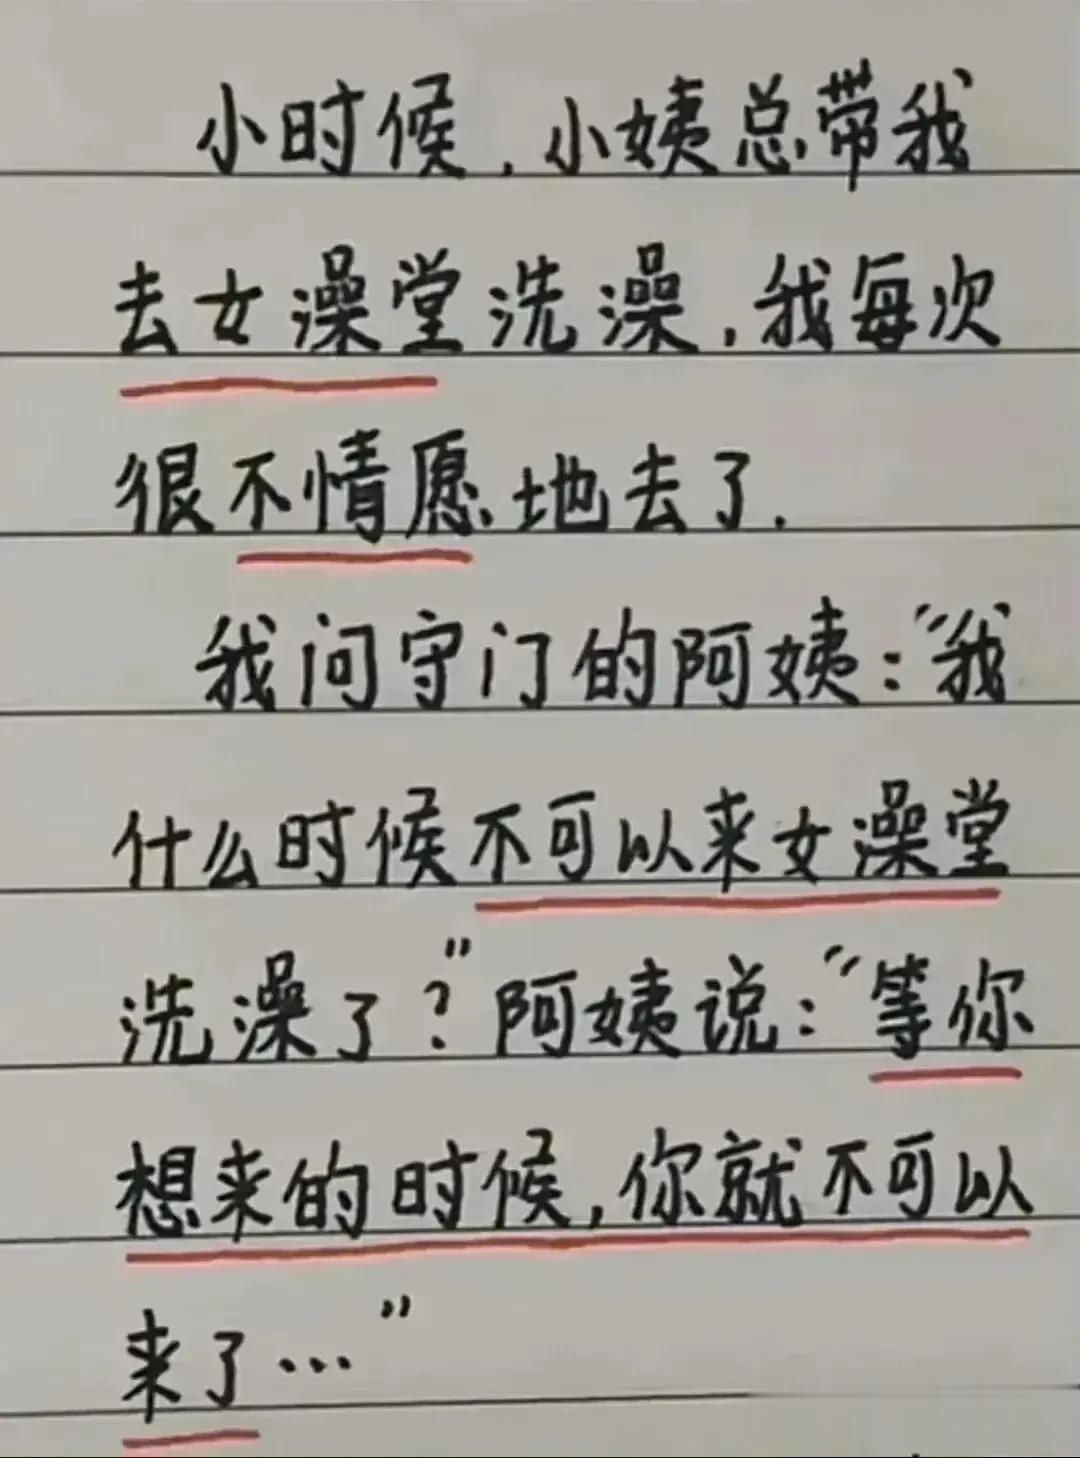 小时候,小姨总带我
去女澡堂洗澡,我每次
很不情愿地去了.
我问守门的阿姨:“我
什么时候不可以来女澡堂
洗澡了?”阿姨说:“等你
想来的时候,你就不可以
来了…”